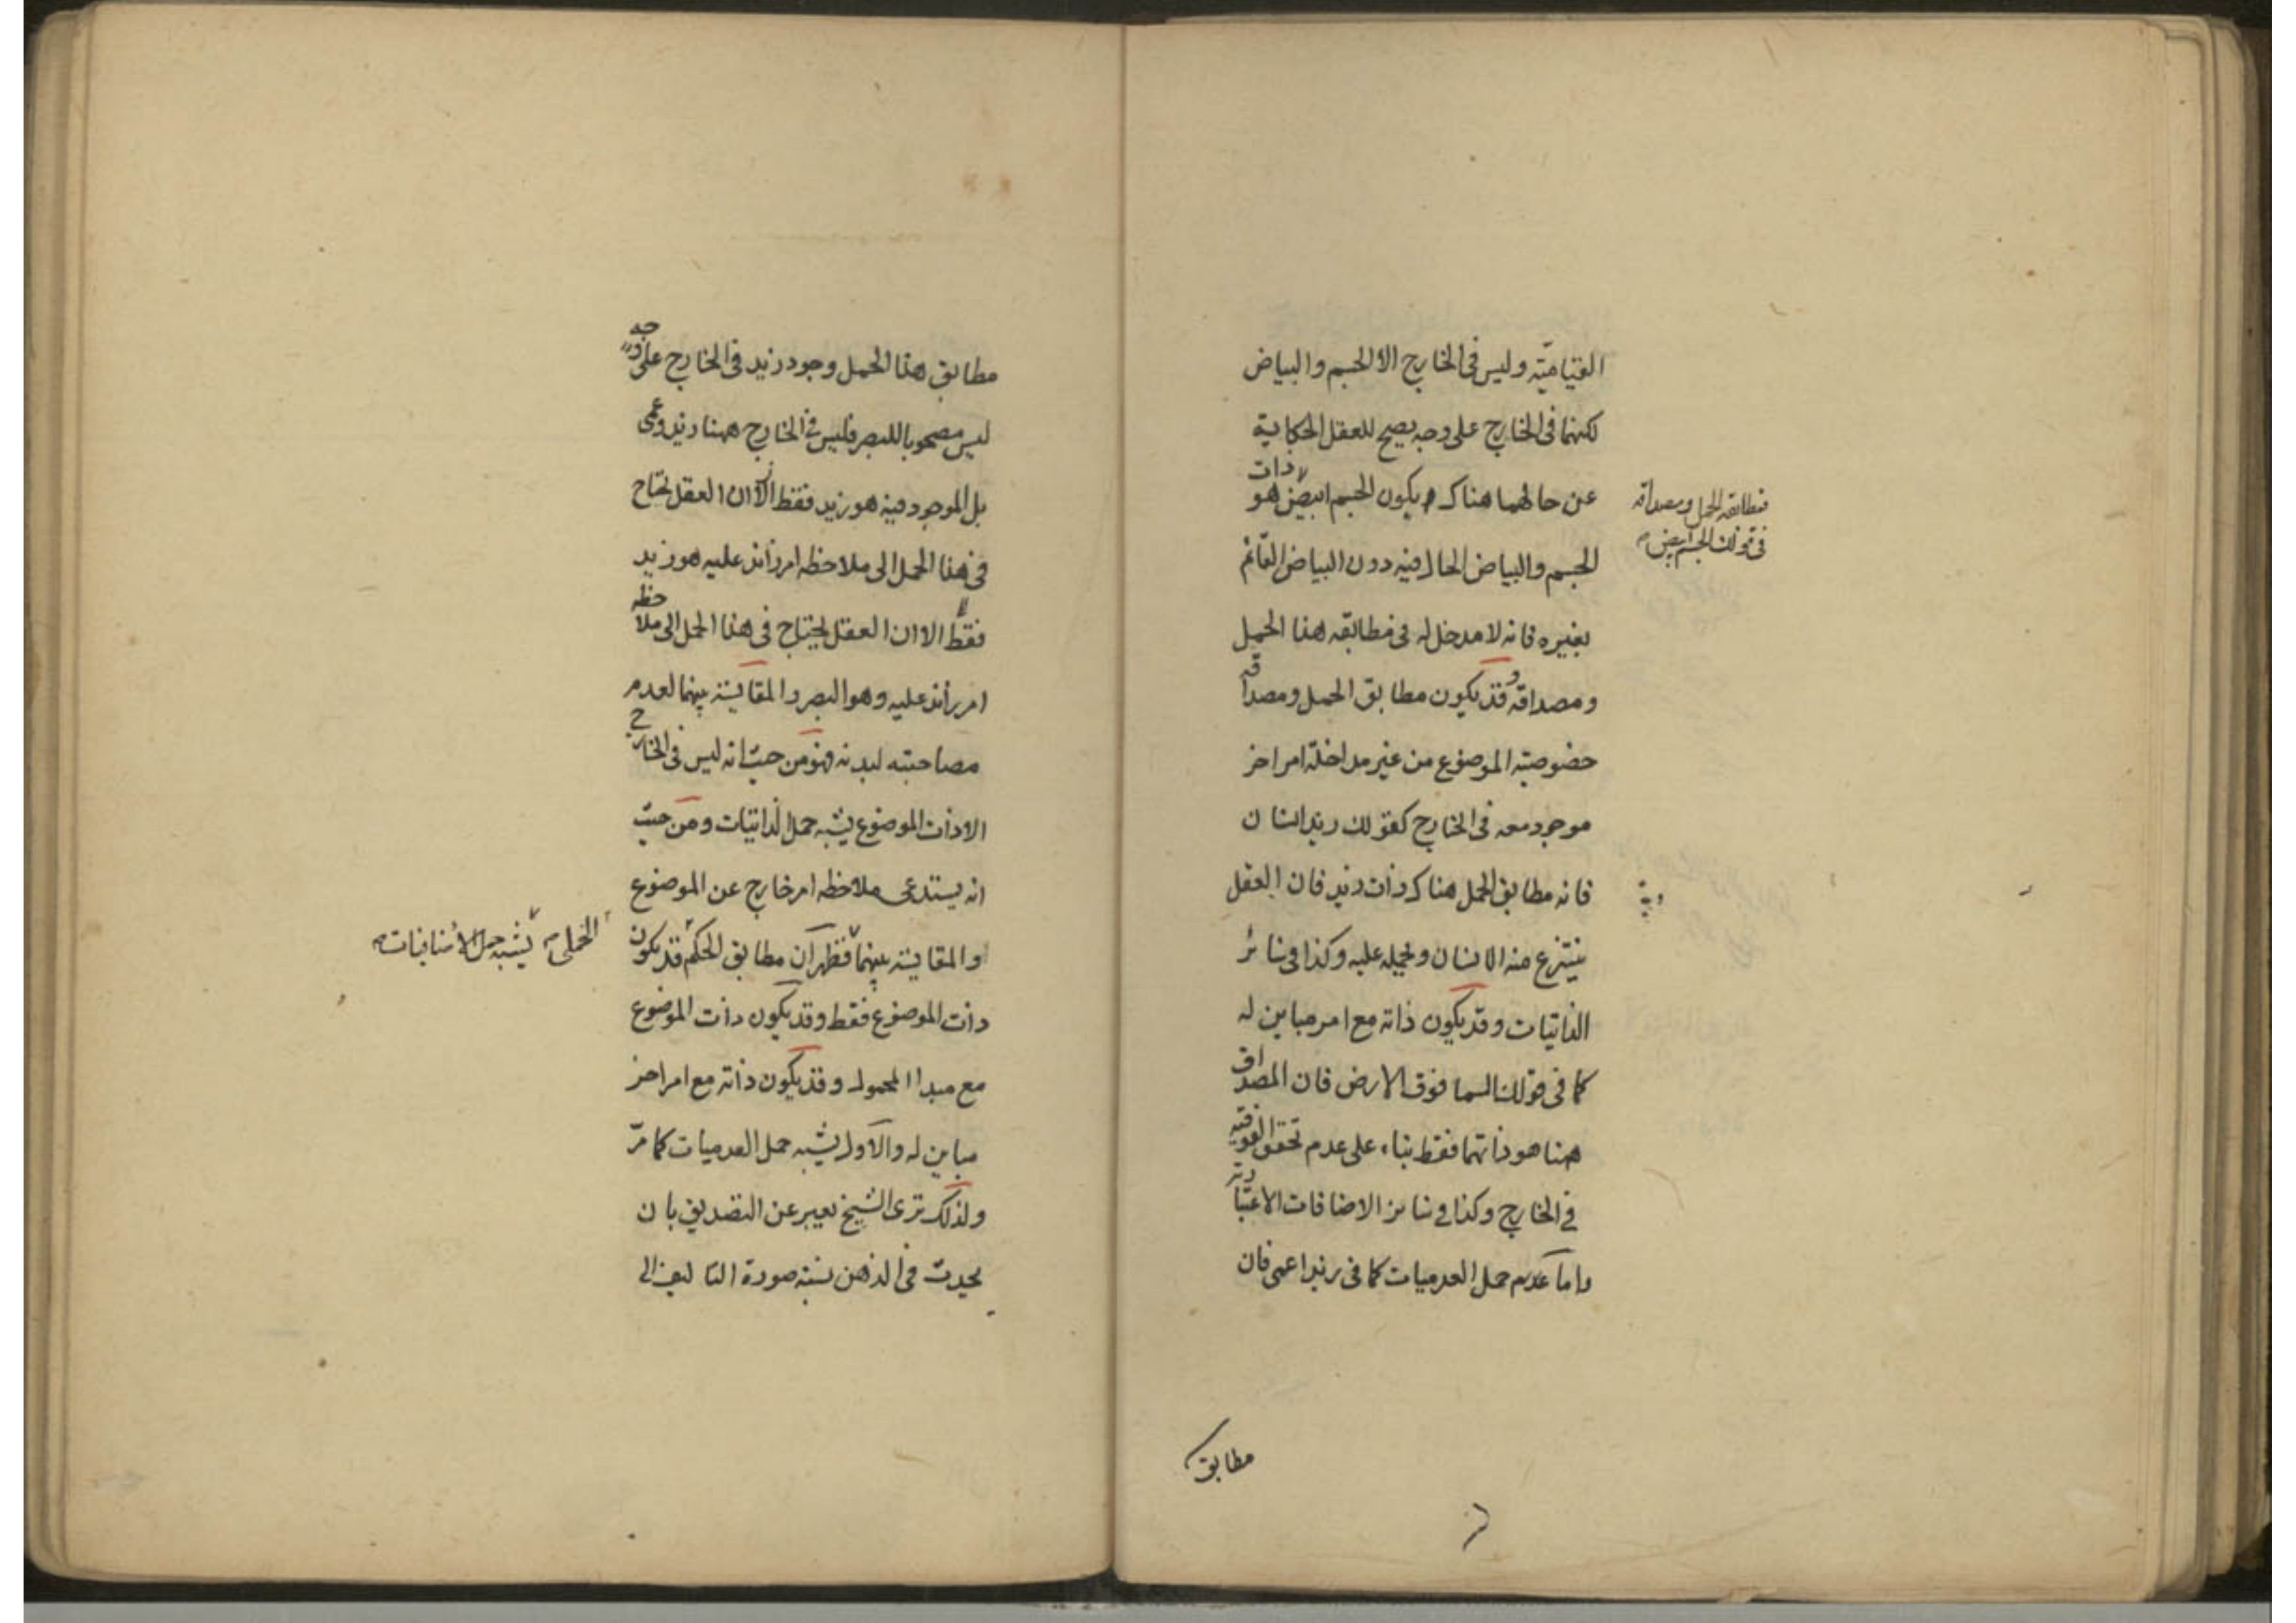 القياميّة وليس فى الخارج الا الجسم والبياض
لكنهما فى الخارج على وجه يصح للعقل الحكاية
عن حالهما هناك بكون الجسم ابيض هو ذات
فمطابقه الحمل ومصداقه
فى قولك الجسم ابيض
الجسم والبياض الحال فيه دون البياض القائم
بغيره فانه لا مدخل له فى مطابقه هذا الحمل
ومصداقه وقد يكون مطابق الحمل ومصداقه
خصوصية الموضوع من غير مداخلة امر اخر
موجود معه فى الخارج كقولك زيد انسان
فانه مطابق الحمل هناك ذات زيد فان العقل
ينتزع منه الانسان ويحمله عليه وكذا فى سائر
الذاتيات وقد يكون ذاته مع امر مباين له
كما فى قولنا السما فوق الارض فان المصداق
هنا هو ذاتهما فقط بناء على عدم تحقق الفوقية
فى الخارج وكذا فى سائر الاضافات الاعتبارية
واما عدم حمل العدميات كما فى زيد اعمى فان
مطابق
مطابق هذا الحمل وجود زيد فى الخارج على وجه
ليس مصحوبا للبصر فليس فى الخارج ههنا زيد وعمى
بل الموجود فيه هو زيد فقط الا ان العقل يحتاج
فى هذا الحمل الى ملاحظه امر زائد عليه هو زيد
فقط الا ان العقل يحتاج فى هذا الحمل الى ملاحظه
امر زائد عليه وهو البصر والمقايسة بينهما لعدم
مصاحبته لبدنه فهو من حيث انه ليس فى الخارج
الا ذات الموضوع يشبه حمل الذاتيات ومن حيث
انه يستدعى ملاحظه امر خارج عن الموضوع
والمقايسة بينهما فظهر ان مطابق الحكم قد يكون
الحملى يشبه حمل الاضافيات
ذات الموضوع فقط وقد يكون ذات الموضوع
مع مبدا المحمول وقد يكون ذاته مع امر اخر
مباين له والاول يشبه حمل العدميات كما مرّ
ولذلك ترى الشيخ يعبر عن التصديق بان
يحدث فى الذهن نسبة صورة التاليف الى